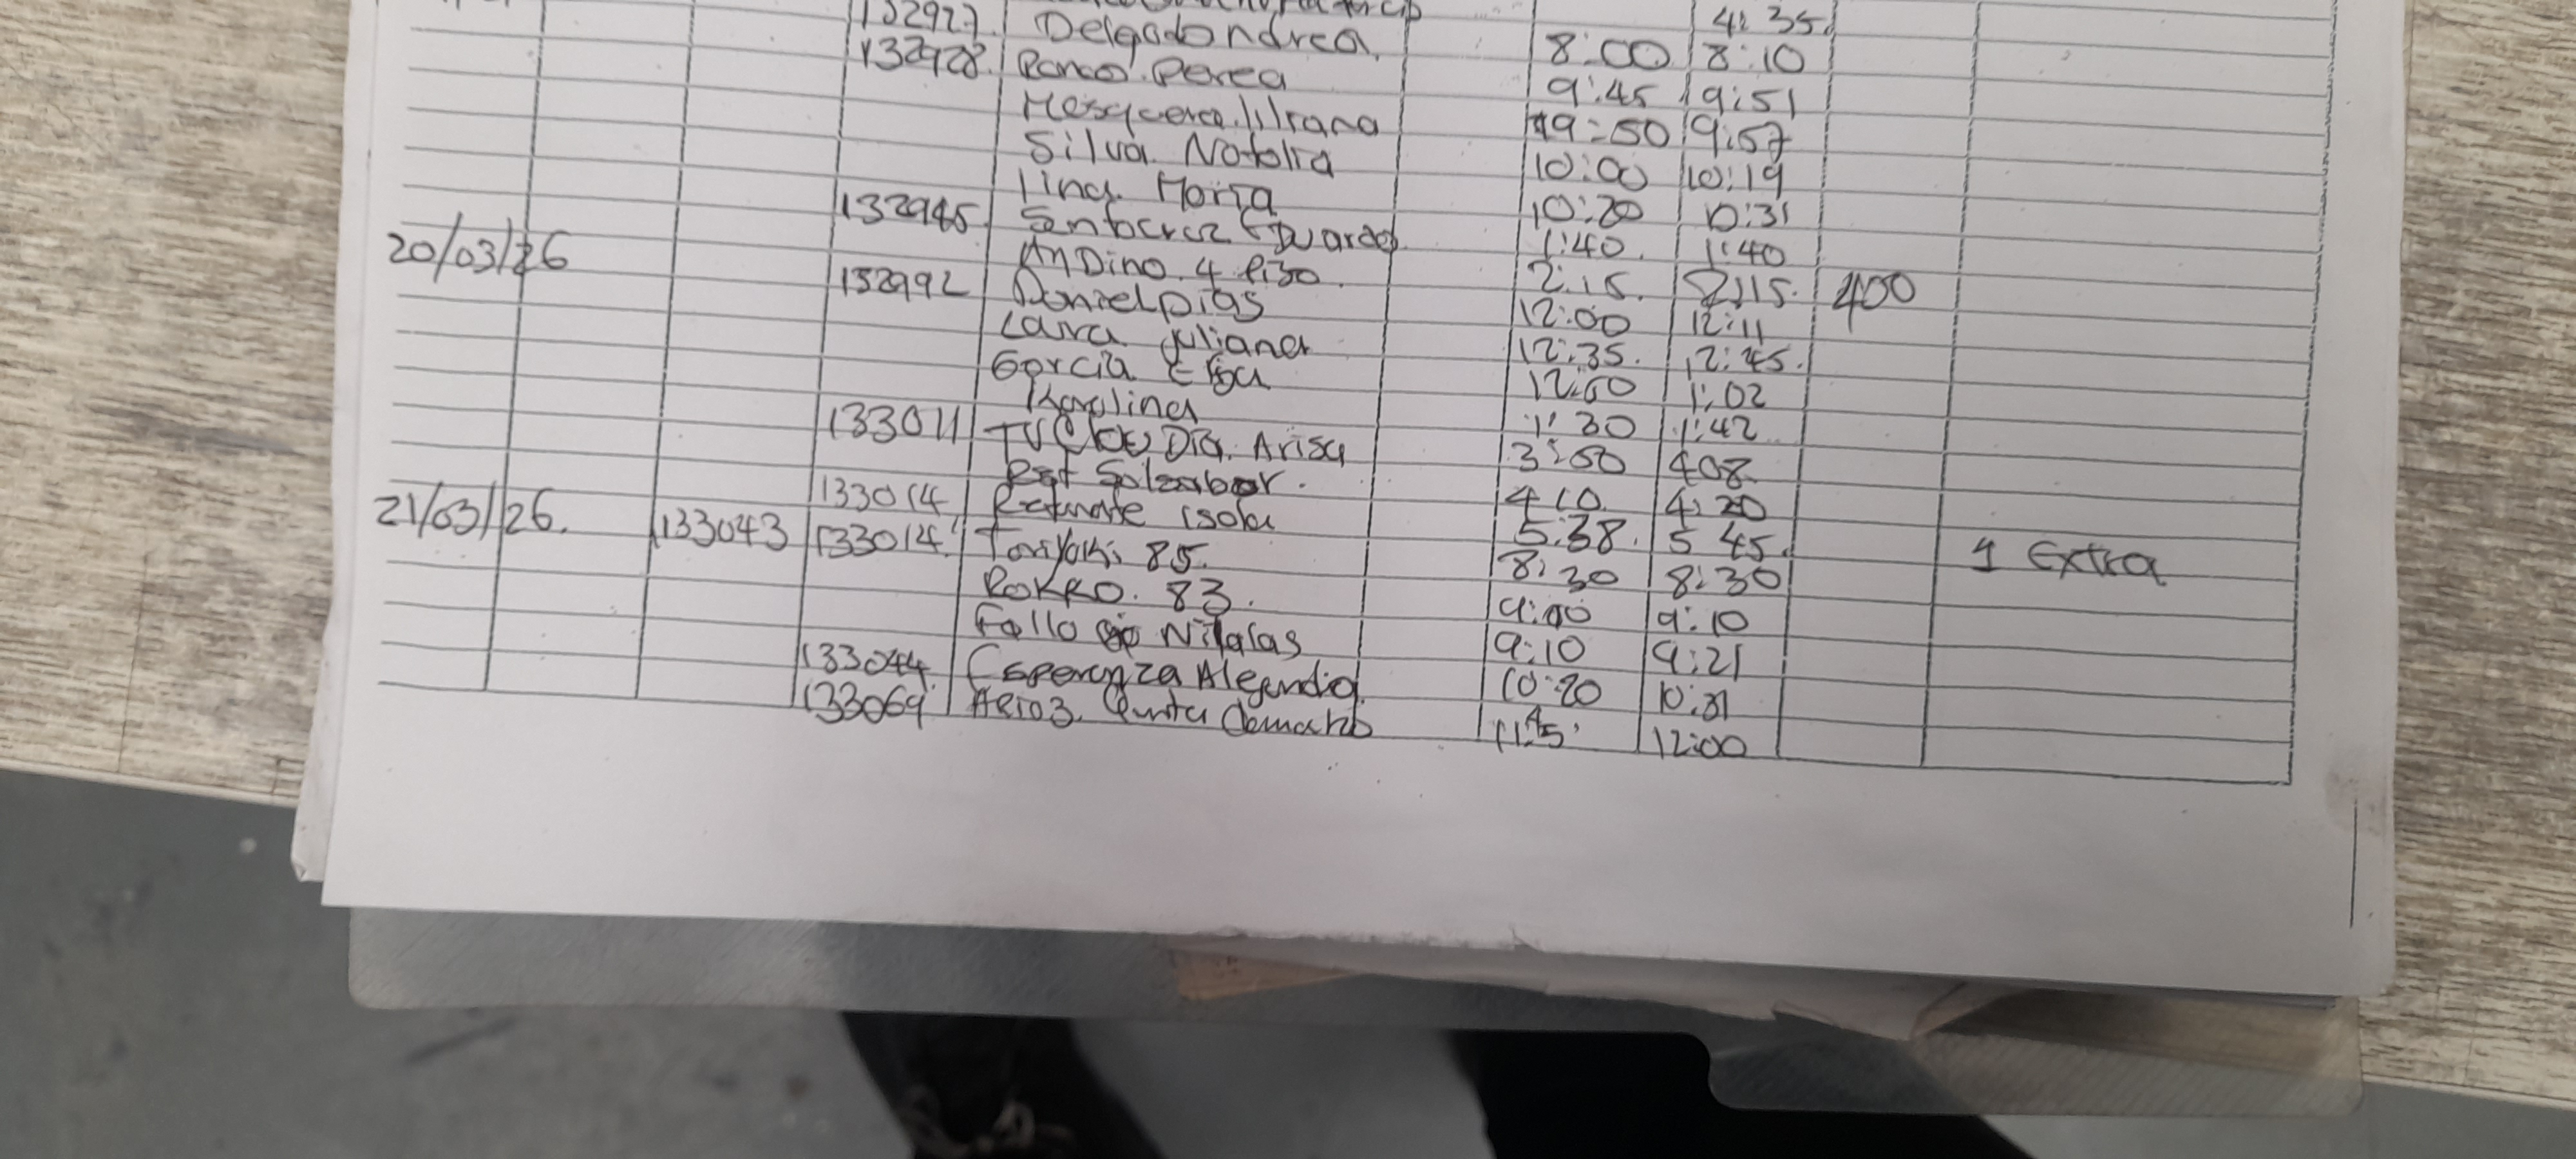 4:35.
132927. Delgado Andrea. 8:00 8:10
132928. Ramos Perea 9:45 9:51
Mosquera liliana 9:50 9:57
Silva Natalia 10:00 10:19
lina Maria 10:20 10:31
132945 Santacruz Eduardo 1:40. 1:40
20/03/26 AnDino. 4 Piso. 2:15. 2:15. 400
132992 Daniel Dias 12:00 12:11
Laura Juliana 12:35. 12:45.
Garcia 12:50 1:02
Karolina 1:30 1:42
133011 Arisa 3:50 408
410. 4:20
133014 Refinate isola 5:38. 5 45.
21/03/26. 133043 133014 Toriyaki 85. 8:30 8:30 1 Extra
ROKRO. 83. 9:00 9:10
Fallo Nilalas 9:10 9:21
133044 Esperanza Alejandia 10:20 10:31
133069 Aeio3. 11:45 12:00